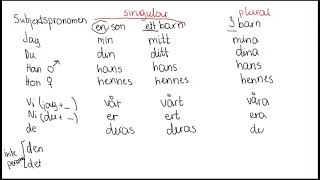 singular plural
Subjektspronomen en son ett barn 2 barn
Jag min mitt mina
Du din ditt dina
Han ♂ hans hans hans
Hon ♀ hennes hennes hennes
Vi (jag + _) vår vårt våra
Ni (du + _) er ert era
de deras deras de
inte person [den
[det